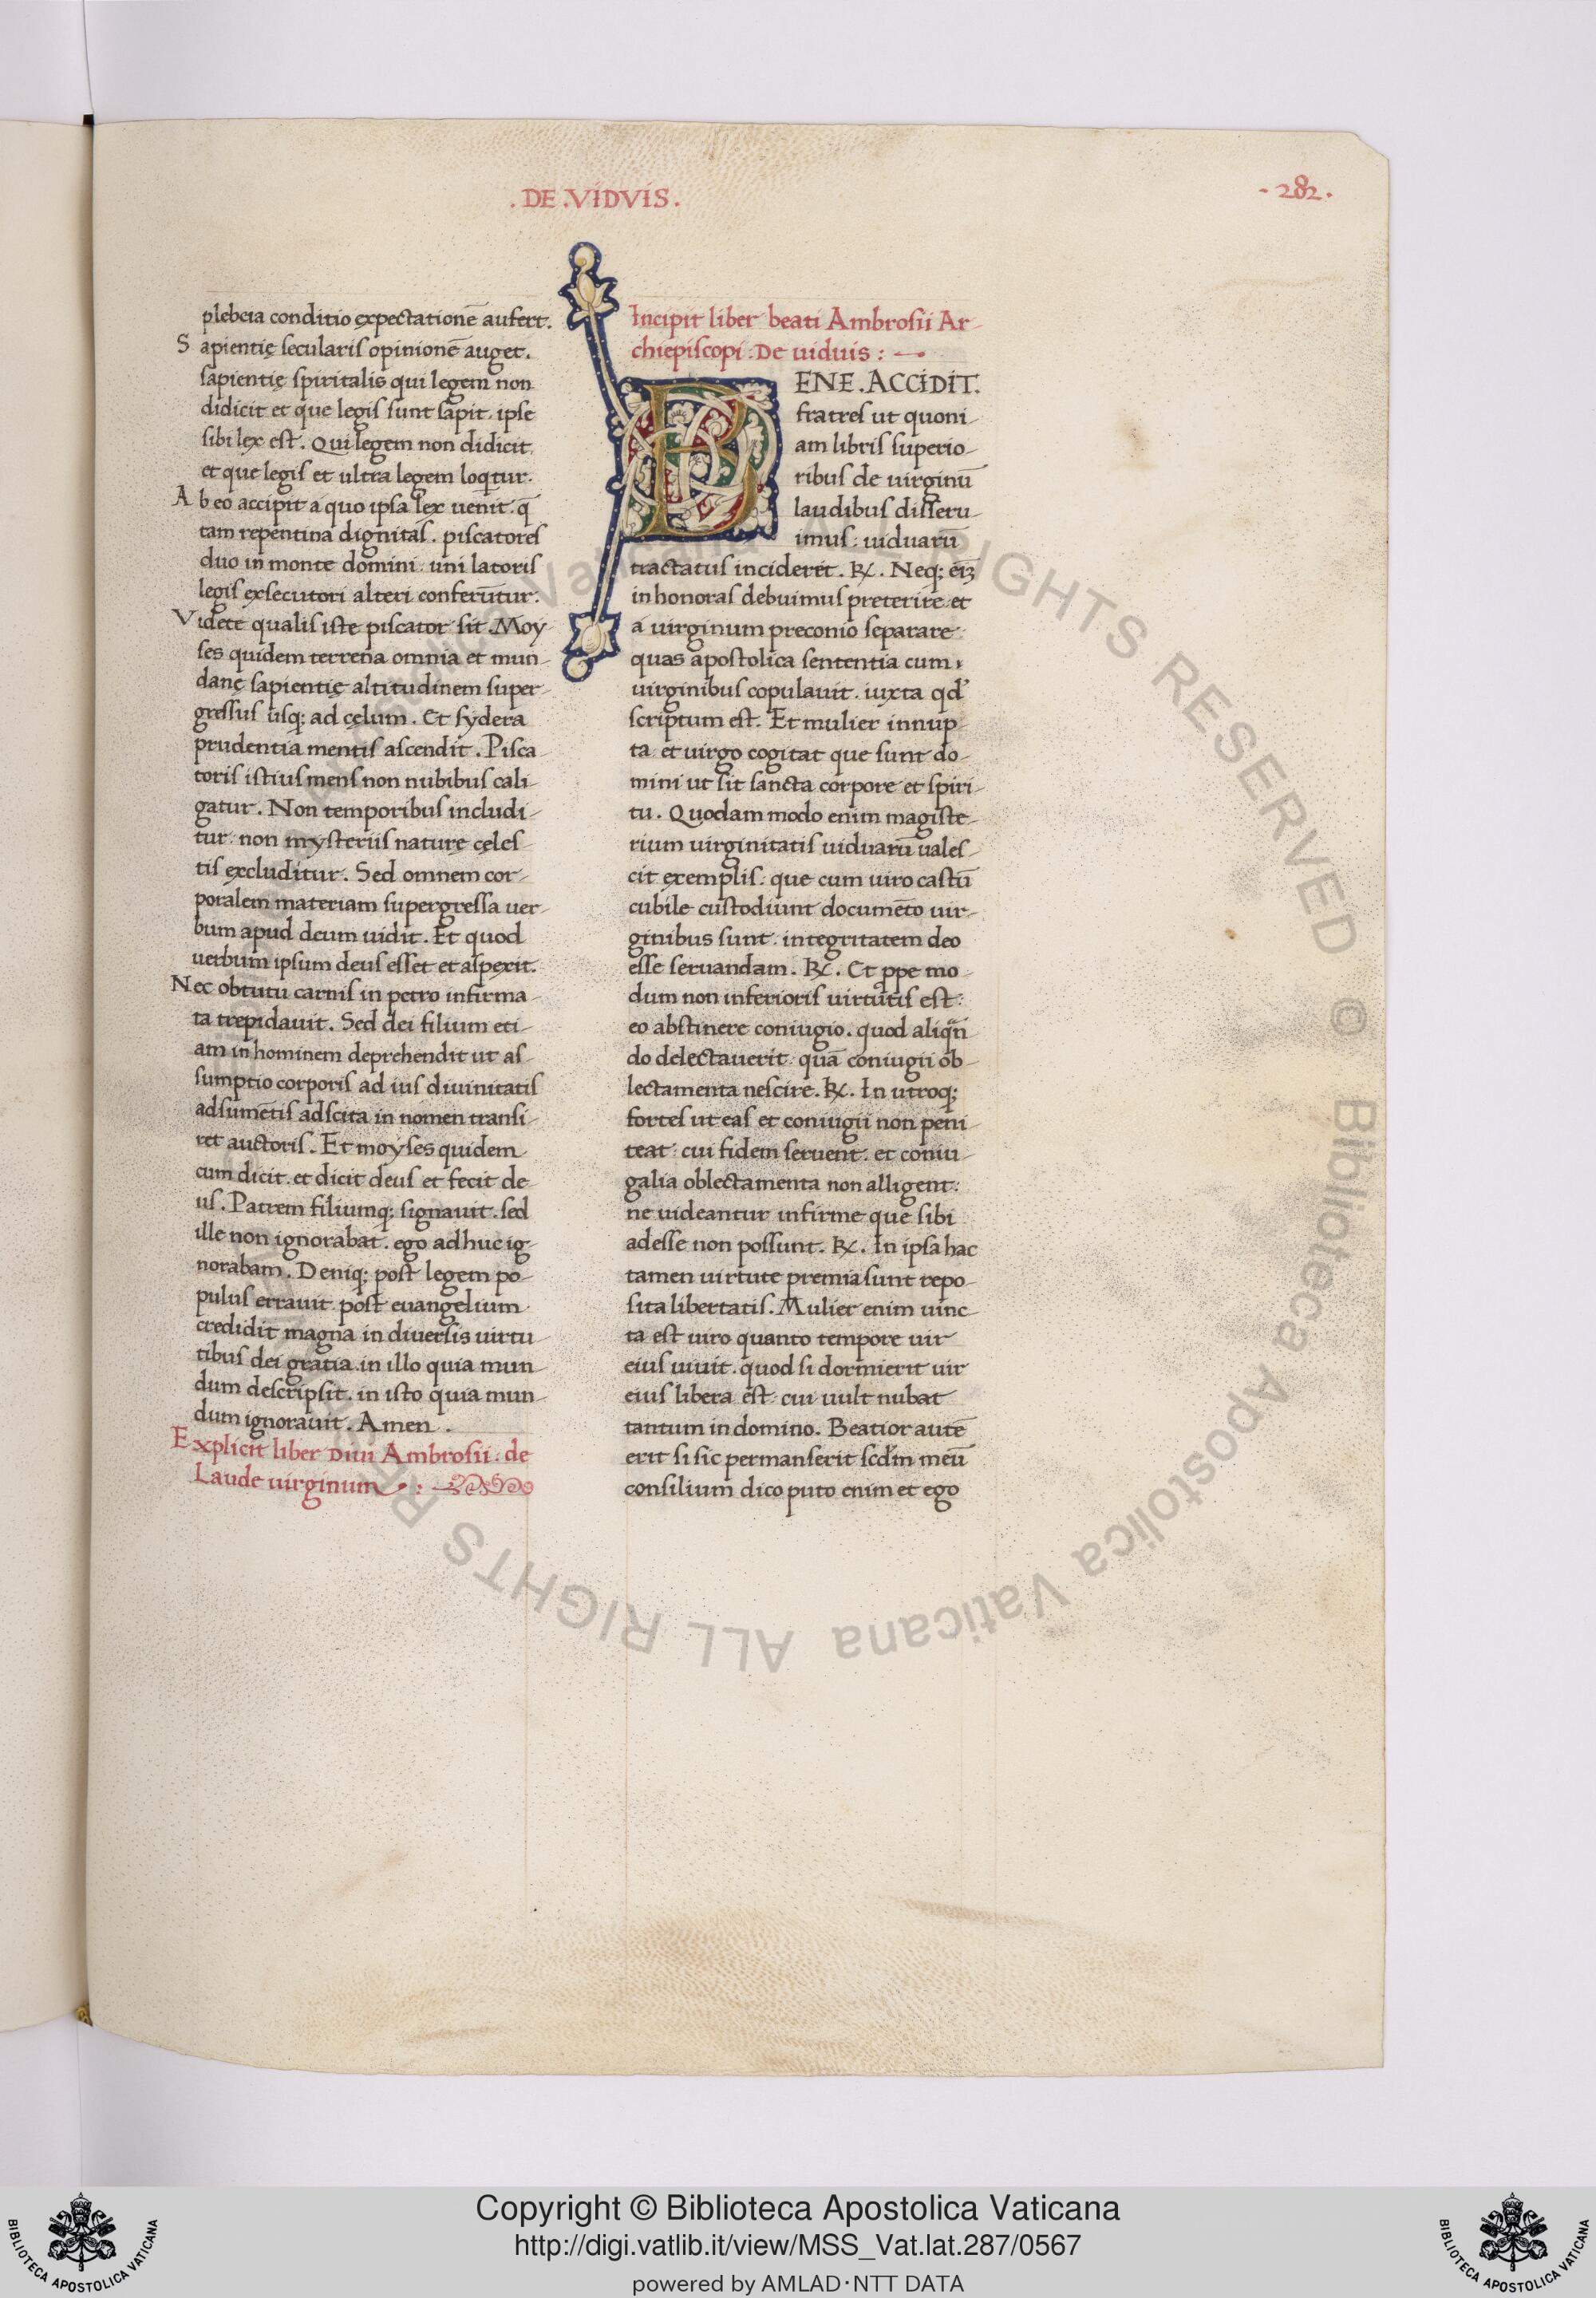 . DE . VIDVIS .
- 282 .
plebeia conditio expectationē aufert.
Sapientię secularis opinionē auget.
sapientię spiritalis qui legem non
didicit et que legis sunt sapit. ipse
sibi lex est. Qui legem non didicit
et que legis et ultra legem loqtur.
Ab eo accipit a quo ipsa lex uenit. q̄
tam repentina dignitas. piscatores
duo in monte domini. uni latoris
legis exsecutori alteri conferūtur.
Videte qualis iste piscator sit. Moy-
ses quidem terrena omnia et mun-
danę sapientię altitudinem super-
gressus usq; ad cęlum. Et sydera
prudentia mentis ascendit. Pisca-
toris istius mens non nubibus cali-
gatur. Non temporibus includi-
tur. non mysteriis naturę cęles-
tis excluditur. Sed omnem cor-
poralem materiam supergressa uer-
bum apud deum uidit. Et quod
uerbum ipsum deus esset et aspexit.
Nec obtutu carnis in petro infirma-
ta trepidauit. Sed dei filium eti-
am in hominem deprehendit ut as-
sumptio corporis ad ius diuinitatis
adsumētis adscita in nomen transi-
ret auctoris. Et moyses quidem
cum dicit. et dicit deus et fecit de-
us. Patrem filiumq; signauit. sed
ille non ignorabat. ego adhuc ig-
norabam. Deniq; post legem po-
pulus errauit post euangelium
credidit magna in diuersis uirtu-
tibus dei gratia. in illo quia mun-
dum descripsit. in isto quia mun-
dum ignorauit. Amen .
Explicit liber Diui Ambrosii. de
Laude uirginum :
Incipit liber beati Ambrosii Ar-
chiepiscopi. De uiduis : -
BENE . ACCIDIT.
fratres ut quoni-
am libris superio-
ribus de uirginū
laudibus disseru-
imus: uiduarū
tractatus inciderit. ℞. Neq; eīꝫ
inhonoras debuimus preterire. et
a uirginum preconio separare
quas apostolica sententia cum
uirginibus copulauit. iuxta qd'
scriptum est. Et mulier innup-
ta et uirgo cogitat que sunt do-
mini ut sit sancta corpore et spiri-
tu. Quodam modo enim magiste-
rium uirginitatis uiduarū uales-
cit exemplis. que cum uiro castū
cubile custodiunt documēto uir-
ginibus sunt. integritatem deo
esse seruandam. ℞. Et ꝓpe mo-
dum non inferioris uirtutis est:
eo abstinere coniugio. quod aliqn̄-
do delectauerit. quā coniugii ob-
lectamenta nescire. ℞. In utroq;
fortes ut eas et coniugii non peni-
teat. cui fidem seruent. et coniu-
galia oblectamenta non alligent:
ne uideantur infirme que sibi
adesse non possunt. ℞. In ipsa hac
tamen uirtute premia sunt repo-
sita libertatis. Mulier enim uinc-
ta est uiro quanto tempore uir
eius uiuit. quod si dormierit uir
eius libera est. cui uult nubat
tantum in domino. Beatior autē
erit si sic permanserit scdm̄ meū
consilium dico puto enim et ego
© Biblioteca Apostolica Vaticana ALL RIGHTS RESERVED
Copyright © Biblioteca Apostolica Vaticana
http://digi.vatlib.it/view/MSS_Vat.lat.287/0567
powered by AMLAD·NTT DATA
BIBLIOTECA APOSTOLICA VATICANA
BIBLIOTECA APOSTOLICA VATICANA